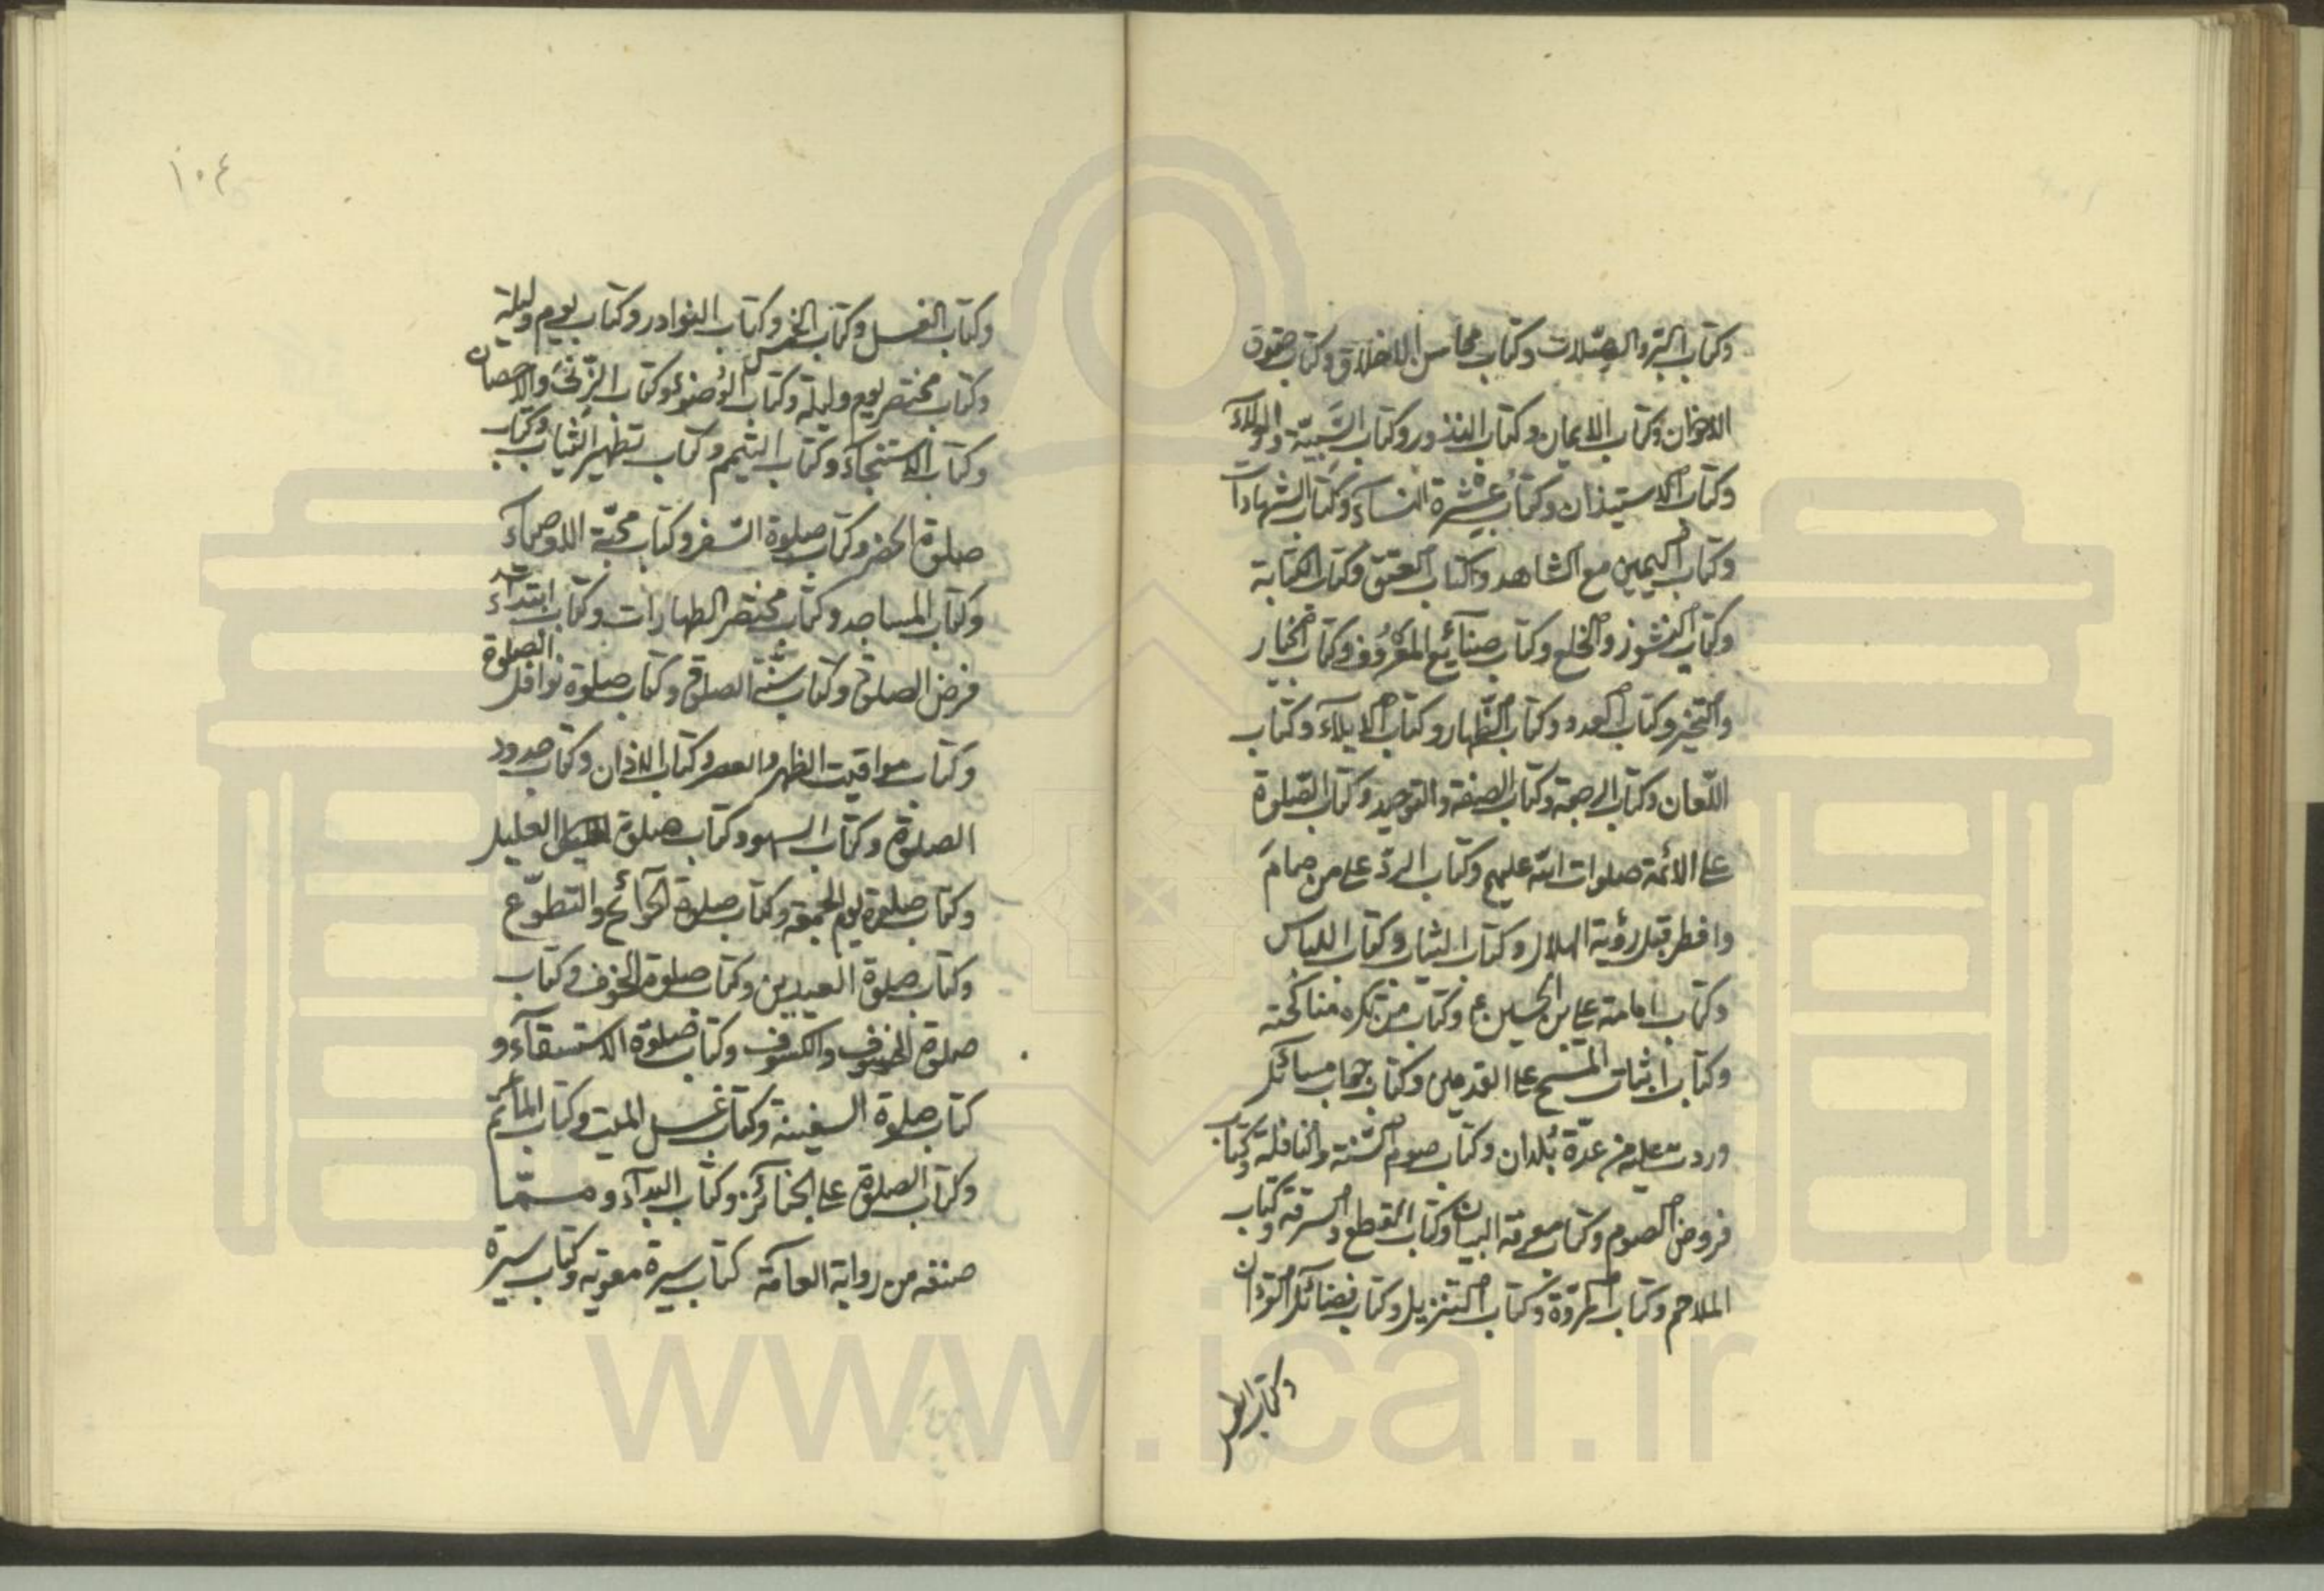 وكتاب البّر والصّلات وكتاب محاسن الاخلاق وكتاب حقوق
الاخوان وكتاب الايمان وكتاب النذور وكتاب النسبة والولاء
وكتاب الاستيذان وكتاب عشرة النساء وكتاب الشهادات
وكتاب اليمين مع الشاهد وكتاب العتق وكتاب الكتابة
وكتاب النشوز والخلع وكتاب صنائع المعروف وكتاب الخيار
والتخير وكتاب العدد وكتاب الظّهار وكتاب الايلاء وكتاب
اللّعان وكتاب الرجعة وكتاب الصفة والتوحيد وكتاب الصّلوة
على الأئمة صلوات الله عليهم وكتاب الردّ على من صام
وافطر قبل رؤية الهلال وكتاب الثياب وكتاب اللباس
وكتاب امامة علي بن الحسين ع وكتاب من تكره مناكحته
وكتاب اثبات المسح على القدمين وكتاب جواب مسائل
وردت عليه من عدّة بُلدان وكتاب صوم السّنة والنافلة وكتاب
فروض الصوم وكتاب معرفة البيان وكتاب القطع والسرقة وكتاب
الملاحم وكتاب المروّة وكتاب التنزيل وكتاب فضائل القرآن
وكتاب
١٠٤
وكتاب الغسل وكتاب الخمس وكتاب النوادر وكتاب يوم وليلة
وكتاب مختصر يوم وليلة وكتاب الوضوء وكتاب الزّنى والاحصان
وكتاب الاستنجاء وكتاب التيمم وكتاب تطهير الثياب وكتاب
صلوة الحضر وكتاب صلوة السّفر وكتاب محبّة الاوصياء
وكتاب المساجد وكتاب مختصر الطهارات وكتاب ابتداء
فرض الصلوة وكتاب سنّة الصلوة وكتاب صلوة نوافل الصلوة
وكتاب مواقيت الظهر والعصر وكتاب الاذان وكتاب حدود
الصلوة وكتاب السهو وكتاب صلوة العليل
وكتاب صلوة يوم الجمعة وكتاب صلوة الحوائج والتطوّع
وكتاب صلوة العيدين وكتاب صلوة الخوف وكتاب
صلوة الخسوف والكسوف وكتاب صلوة الاستسقاء و
كتاب صلوة السفينة وكتاب غسل الميت وكتاب المأتم
وكتاب الصلوة على الجنائز وكتاب البداء ومــمّا
صنفه من رواية العامّة كتاب سيرة معوية وكتاب سيرة
www.ical.ir